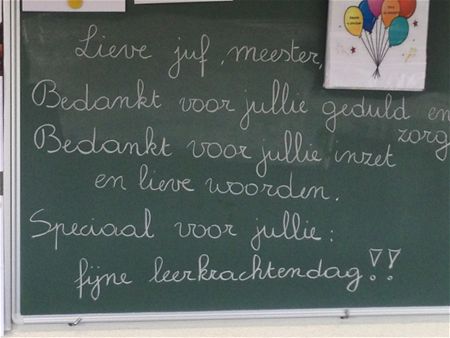 Lieve juf, meester,
Bedankt voor jullie geduld en
zorg
Bedankt voor jullie inzet
en lieve woorden.
Speciaal voor jullie:
fijne leerkrachtendag!!